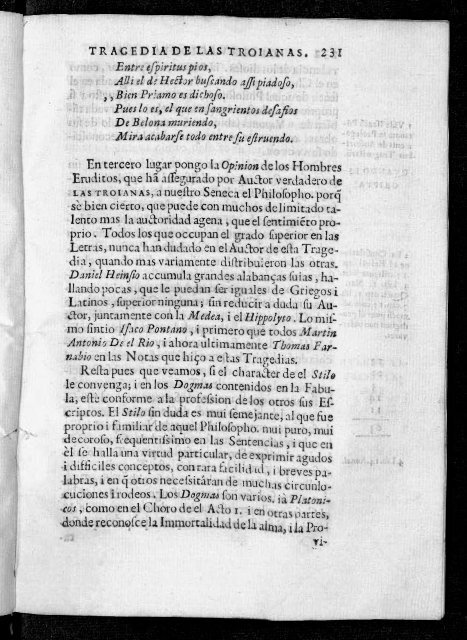 TRAGEDIA DE LAS TROIANAS. 231
Entre espiritus pios,
Alli el de Hector buscando assi piadoso,
,, Bien Priamo es dichoso.
Pues lo es, el que en sangrientos desafios
De Belona muriendo,
Mira acabarse todo entre su estruendo.
En tercero lugar pongo la Opinion de los Hombres
Eruditos, que hà assegurado por Auctor verdadero de
LAS TROIANAS, a nuestro Seneca el Philosopho. porq̃
sè bien cierto, que puede con muchos de limitado ta-
lento mas la auctoridad agena, que el sentimiẽto pro-
prio. Todos los que occupan el grado superior en las
Letras, nunca han dudado en el Auctor de esta Trage-
dia, quando mas variamente distribuieron las otras.
Daniel Heinsio accumula grandes alabanças suias, ha-
llando pocas, que le puedan ser iguales de Griegos i
Latinos, superior ninguna; sin reducir a duda su Au-
ctor, juntamente con la Medea, i el Hippolyto. Lo mis-
mo sintio Isaco Pontano, i primero que todos Martin
Antonio De el Rio, i ahora ultimamente Thomas Far-
nabio en las Notas que hiço a estas Tragedias.
Resta pues que veamos, si el character de el Stilo
le convenga; i en los Dogmas contenidos en la Fabu-
la, estè conforme a la profession de los otros sus Es-
criptos. El Stilo sin duda es mui semejante, al que fue
proprio i familiar de aquel Philosopho. mui puro, mui
decoroso, frequentissimo en las Sentencias, i que en
èl se halla una virtud particular, de exprimir agudos
i difficiles conceptos, con rara facilidad, i breves pa-
labras, i en q̃ otros necessitàran de muchas circunlo-
cuciones i rodeos. Los Dogmas son varios. ia Platoni-
cos, como en el Choro de el Acto 1. i en otras partes,
donde reconosce la Immortalidad de la alma, i la Pro-
vi-